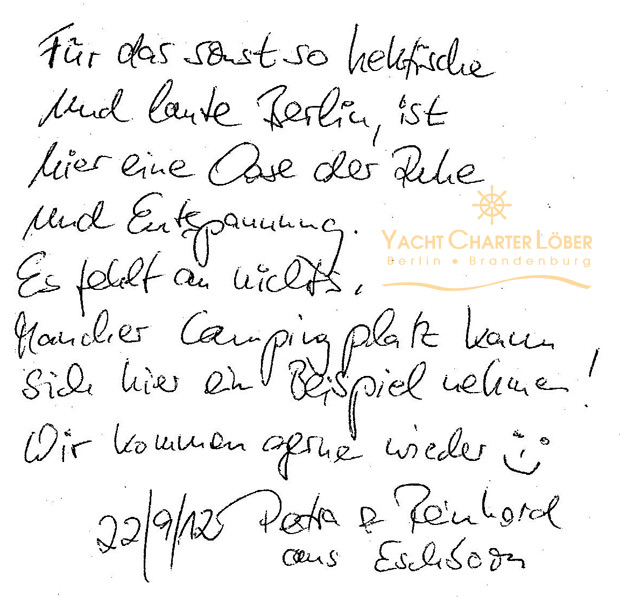 Für das sonst so hektische
und laute Berlin, ist
hier eine Oase der Ruhe
und Entspannung.
YACHT CHARTER LÖBER
Berlin • Brandenburg
Es fehlt an nichts,
Mancher Campingplatz kann
sich hier ein Beispiel nehmen!
Wir kommen gerne wieder
22/9/12 Petra & Reinhard
aus Eschborn